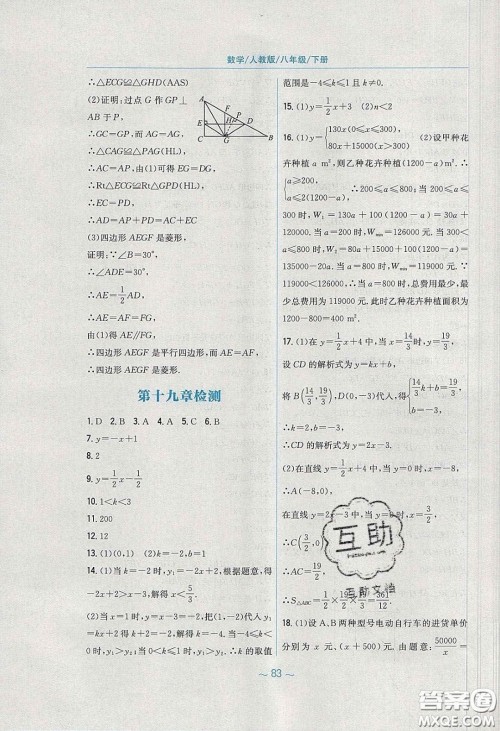 数学/人教版/八年级/下册
∴△ECG≌△GHD(AAS)
(2)证明:过点 G 作 GP⊥
AB 于 P,
∴GC=GP,而 AG=AG,
∴△CAG≌△PAG(HL),
∴AC=AP,由(1)可得 EG=DG,
∴Rt△ECG≌Rt△GPD(HL),
∴EC=PD,
∴AD=AP+PD=AC+EC
(3)四边形 AEGF 是菱形,
证明:∵∠B=30°,
∴∠ADE=30°,
∴AE=1/2 AD,
∴AE=AF=FG,
由(1)得 AE∥FG,
∴四边形 AEGF 是平行四边形,而 AE=AF,
∴四边形 AEGF 是菱形.
A
F
P
E
H
D
C
G
B
第十九章检测
1. D 2. B 3. A 4. A 5. C 6. B
7. y=-x+1
8. 2
9. y=1/2 x-1/2
10. 1<k<3
11. 200
12. 12
13. (1)(0,1) (2)k=-2,b=1
14. (1)当 k=-2 时,y₁=-2x+2,根据题意,得
-2x+2>x-3,解得 x<5/3.
(2)当 x=1 时,y=x-3=-2,把(1,-2)代入 y₁
=kx+2 得 k+2=-2,解得 k=-4,当-4≤k<0
时,y₁>y₂;当 0<k≤1 时,y₁>y₂. ∴k 的取值
范围是-4≤k≤1 且 k≠0.
15. (1)y=1/2 x+3 (2)n<2
16. (1)y={130x(0≤x≤300), 80x+15000(x>300) (2)设甲种花
卉种植 a m²,则乙种花卉种植(1200-a)m².
∴{a≥200, a≤2(1200-a) ∴200≤a≤800;当 200≤a≤
300 时,W₁=130a+100(1200-a)=30a+
120000. 当 a=200 时,Wmin=126000 元;当
300<a≤800 时,W₂=80a+15000+100(1200
-a)=135000-20a. 当 a=800 时,Wmin=
119000 元,∵119000<126000,∴当 a=800 时,总费用最少,最
少总费用为 119000 元. 此时乙种花卉种植面积为
1200-800=400 m².
17. (1)在 y=1/2 x+4 中,当 x=14/3 时,y=19/3,
设 CD 的解析式为 y=kx+b,
将 B(14/3,19/3),代入得{14/3 k+b=19/3, k+b=-1
∴k=2,b=-3,
∴CD 的解析式为 y=2x-3.
(2)在直线 y=1/2 x+4 中,当 y=0 时,x=-8,
∴A(-8,0),
在直线 y=2x-3 中,当 y=0 时,x=3/2,
∴C(3/2,0),
∴AC=19/2,
∴S△ABC=1/2×19/2×19/3=361/12.
18. (1)设 A、B 两种型号电动自行车的进货单价
分别为 x 元,(x+500)元. 由题意:50000/x=
互助
互助文档
~ 83 ~
答案圈
MXQE.COM